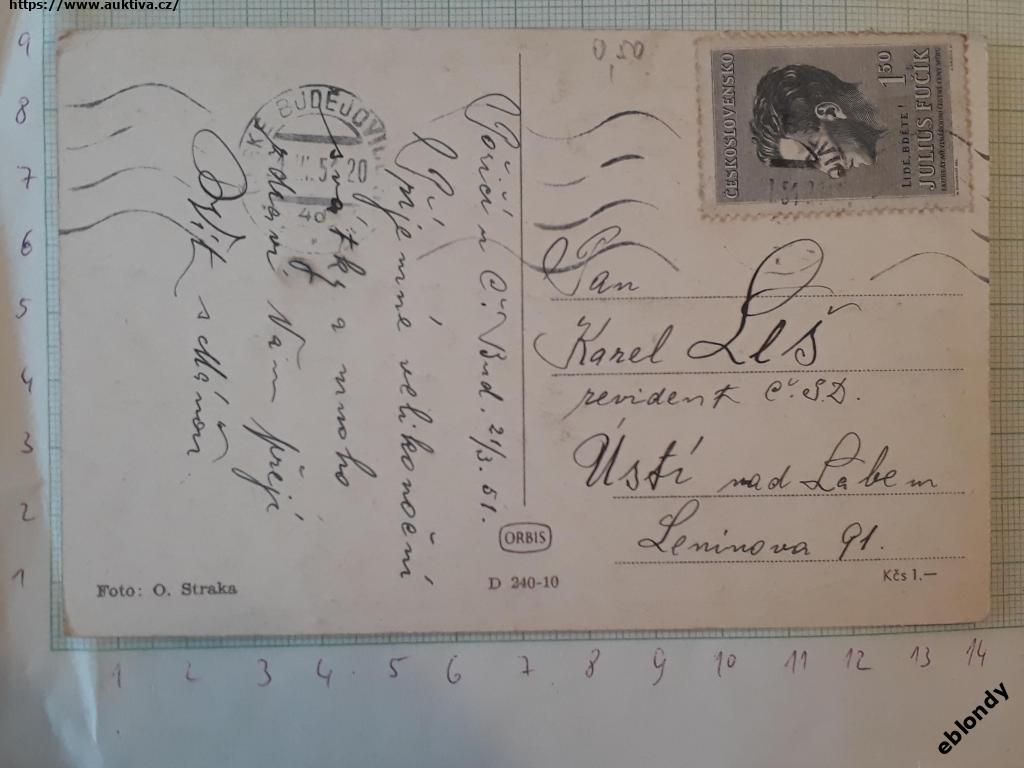 https://www.auktiva.cz/
9
8
7
6
5
4
3
2
1
0,50
ČESKOSLOVENSKO
LIDÉ, BDĚTE!
JULIUS FUČÍK
1 50
BUDĚJOV
Poříčí u Č. Bud. 21/3. 51.
Příjemné velikonoční
svátky a mnoho
zdaví Vám přejí
s chánou.
Pan
Karel Leš
revident Č.S.D.
Ústí nad Labem
Leninova 91.
Kčs 1.—
ORBIS
D 240-10
Foto: O. Straka
1 2 3 4 5 6 7 8 9 10 11 12 13 14
eblondy